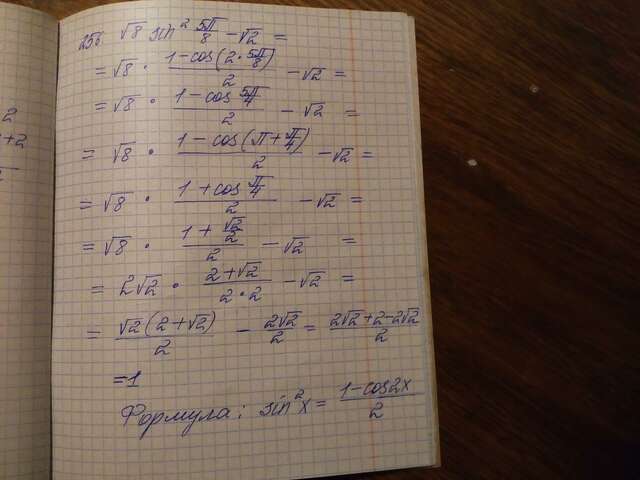 256 √8 sin² 5π/8 − √2 =
= √8 · (1 − cos(2 · 5π/8))/2 − √2 =
= √8 · (1 − cos 5π/4)/2 − √2 =
= √8 · (1 − cos(π + π/4))/2 − √2 =
= √8 · (1 + cos π/4)/2 − √2 =
= √8 · (1 + √2/2)/2 − √2 =
= 2√2 · (2 + √2)/(2 · 2) − √2 =
= √2(2 + √2)/2 − 2√2/2 = (2√2 + 2 − 2√2)/2
= 1
Формула: sin² x = (1 − cos 2x)/2
2
+2